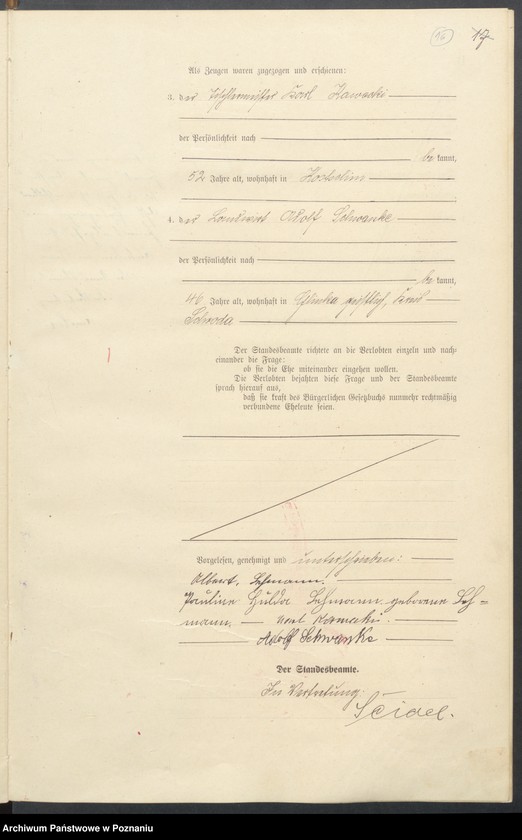 16 17
Als Zeugen waren zugezogen und erschienen:
3. der Tischlermeister Karl Kawecki
der Persönlichkeit nach
be kannt,
52 Jahre alt, wohnhaft in
4. der Landwirt Adolf Schwanke
der Persönlichkeit nach
be kannt,
46 Jahre alt, wohnhaft in Glinka Kreis
Schroda
Der Standesbeamte richtete an die Verlobten einzeln und nach=
einander die Frage:
ob sie die Ehe miteinander eingehen wollen.
Die Verlobten bejahten diese Frage und der Standesbeamte
sprach hierauf aus,
daß sie kraft des Bürgerlichen Gesetzbuchs nunmehr rechtmäßig
verbundene Eheleute seien.
Vorgelesen, genehmigt und unterschrieben:
Albert Lehmann.
Pauline Hulda Lehmann geborene Leh=
mann. Karl
Adolf Schwanke
Der Standesbeamte.
In Vertretung
Seidel.
Archiwum Państwowe w Poznaniu